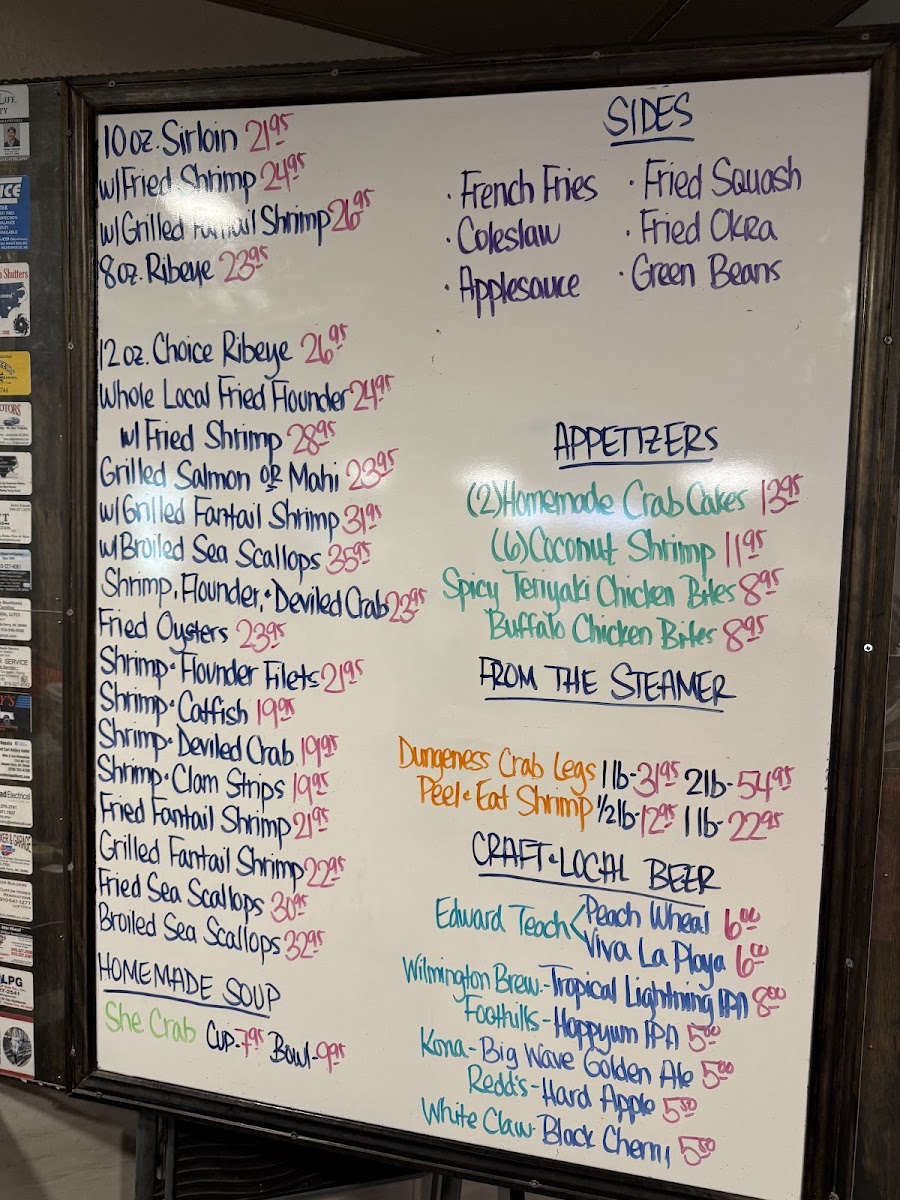 10 oz. Sirloin 21.95
w/ Fried Shrimp 24.95
w/ Grilled Fantail Shrimp 26.95
8 oz. Ribeye 23.95
12 oz. Choice Ribeye 26.95
Whole Local Fried Flounder 24.95
w/ Fried Shrimp 28.95
Grilled Salmon OR Mahi 23.95
w/ Grilled Fantail Shrimp 31.95
w/ Broiled Sea Scallops 35.95
Shrimp, Flounder, + Deviled Crab 23.95
Fried Oysters 23.95
Shrimp + Flounder Filets 21.95
Shrimp + Catfish 19.95
Shrimp + Deviled Crab 19.95
Shrimp + Clam Strips 19.95
Fried Fantail Shrimp 21.95
Grilled Fantail Shrimp 22.95
Fried Sea Scallops 30.95
Broiled Sea Scallops 32.95
HOMEMADE SOUP
She Crab Cup-7.95 Bowl-9.95
SIDES
· French Fries · Fried Squash
· Coleslaw · Fried Okra
· Applesauce · Green Beans
APPETIZERS
(2) Homemade Crab Cakes 13.95
(6) Coconut Shrimp 11.95
Spicy Teriyaki Chicken Bites 8.95
Buffalo Chicken Bites 8.95
FROM THE STEAMER
Dungeness Crab Legs 1 lb-31.95 2 lb-54.95
Peel + Eat Shrimp 1/2 lb-12.95 1 lb-22.95
CRAFT + LOCAL BEER
Edward Teach < Peach Wheat 6.00
Viva La Playa 6.00
Wilmington Brew.-Tropical Lightning IPA 8.00
Foothills-Hoppyum IPA 5.00
Kona-Big Wave Golden Ale 5.00
Redd's-Hard Apple 5.50
White Claw-Black Cherri 5.50